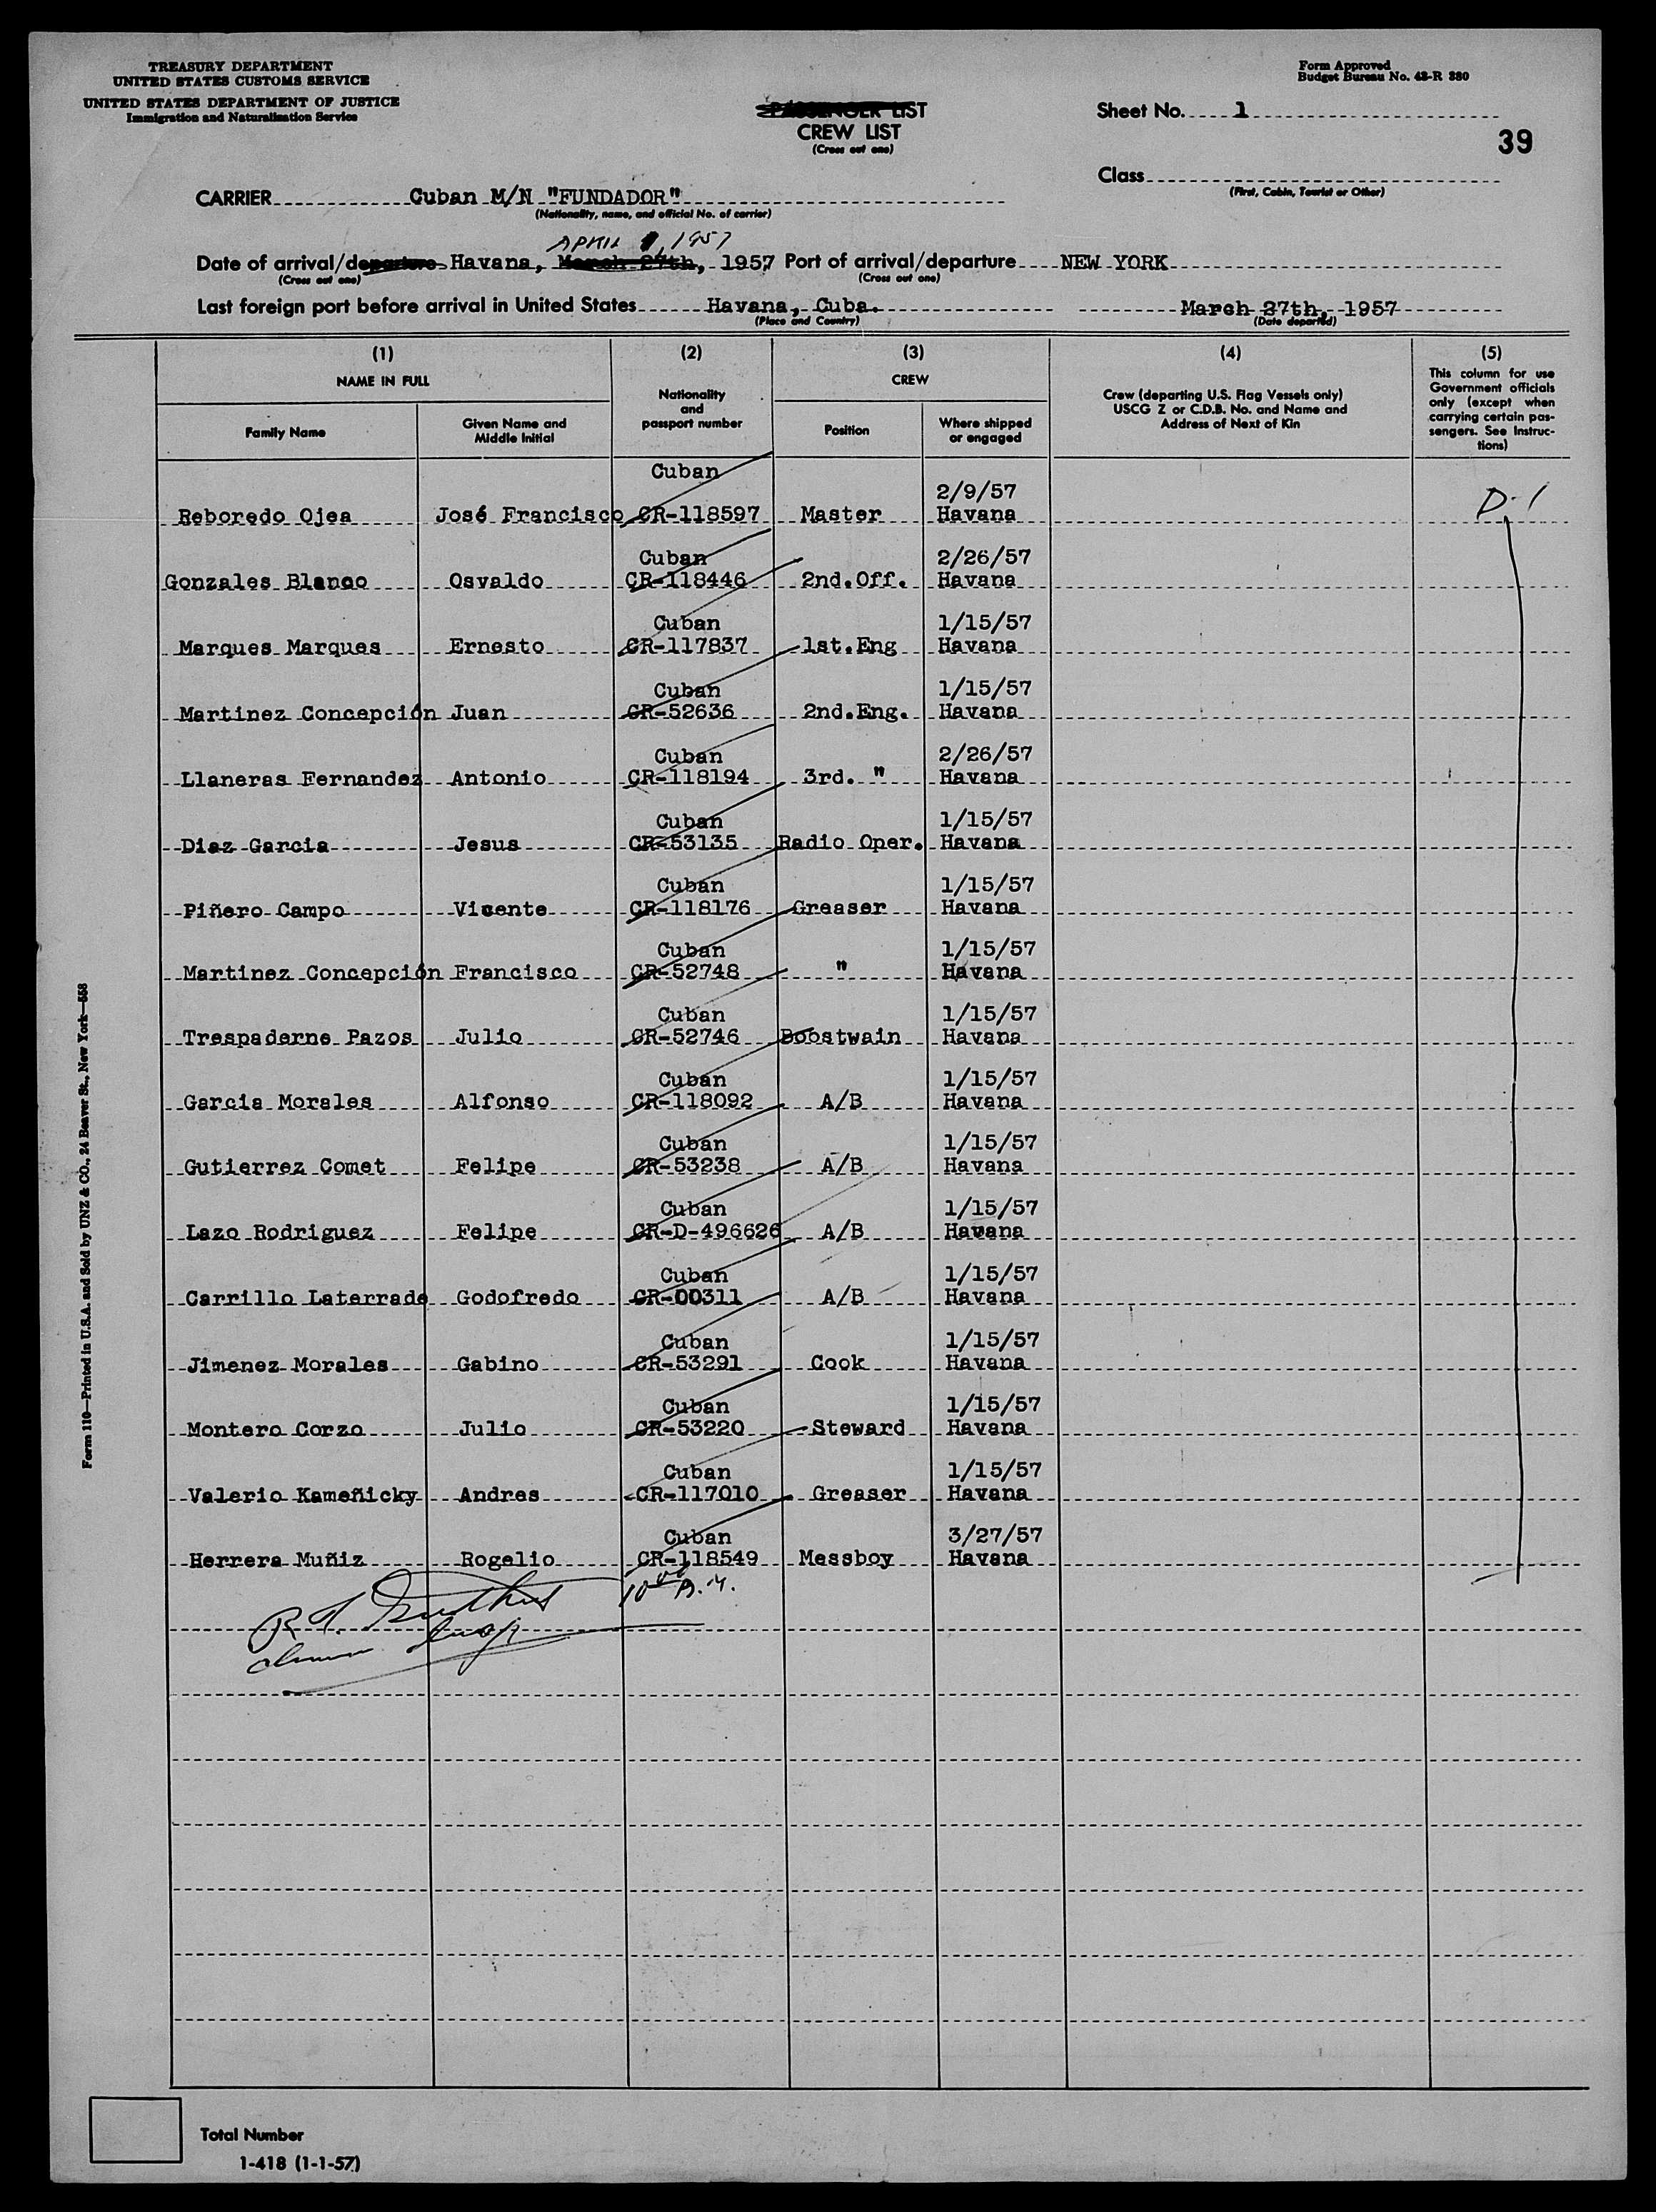 TREASURY DEPARTMENT
UNITED STATES CUSTOMS SERVICE
UNITED STATES DEPARTMENT OF JUSTICE
Immigration and Naturalization Service
Form Approved
Budget Bureau No. 43-R 380
PASSENGER LIST
CREW LIST
(Cross out one)
Sheet No. 1
39
Class
(First, Cabin, Tourist or Other)
CARRIER Cuban M/N "FUNDADOR"
(Nationality, name, and official No. of carrier)
APRIL 1, 1957
Date of arrival/departure Havana, March 27th, 1957 Port of arrival/departure NEW YORK
(Cross out one) (Cross out one)
Last foreign port before arrival in United States Havana, Cuba. March 27th, 1957
(Place and Country) (Date departed)
(1) (2) (3) (4) (5)
NAME IN FULL
Family Name
Given Name and Middle Initial
Nationality and passport number
CREW
Position
Where shipped or engaged
Crew (departing U.S. Flag Vessels only)
USCG Z or C.D.B. No. and Name and
Address of Next of Kin
This column for use
Government officials
only (except when
carrying certain pas-
sengers. See Instruc-
tions)
Cuban 2/9/57
Reboredo Ojea José Francisco CR-118597 Master Havana D-1
Cuban 2/26/57
Gonzales Blanco Osvaldo CR-118446 2nd.Off. Havana
Cuban 1/15/57
Marques Marques Ernesto CR-117837 1st.Eng Havana
Cuban 1/15/57
Martinez Concepción Juan CR-52636 2nd.Eng. Havana
Cuban 2/26/57
Llaneras Fernandez Antonio CR-118194 3rd. " Havana
Cuban 1/15/57
Diaz Garcia Jesus CR-53135 Radio Oper. Havana
Cuban 1/15/57
Piñero Campo Vicente CR-118176 Greaser Havana
Cuban 1/15/57
Martinez Concepción Francisco CR-52748 " Havana
Cuban 1/15/57
Trespaderne Pazos Julio CR-52746 Boostwain Havana
Cuban 1/15/57
Garcia Morales Alfonso CR-118092 A/B Havana
Cuban 1/15/57
Gutierrez Comet Felipe CR-53238 A/B Havana
Cuban 1/15/57
Lazo Rodriguez Felipe CR-D-496626 A/B Havana
Cuban 1/15/57
Carrillo Laterrade Godofredo CR-00311 A/B Havana
Cuban 1/15/57
Jimenez Morales Gabino CR-53291 Cook Havana
Cuban 1/15/57
Montero Corzo Julio CR-53220 Steward Havana
Cuban 1/15/57
Valerio Kameñicky Andres CR-117010 Greaser Havana
Cuban 3/27/57
Herrera Muñiz Rogelio CR-118549 Messboy Havana
Form 110—Printed in U.S.A. and Sold by UNZ & CO., 24 Beaver St., New York—558
Total Number
1-418 (1-1-57)